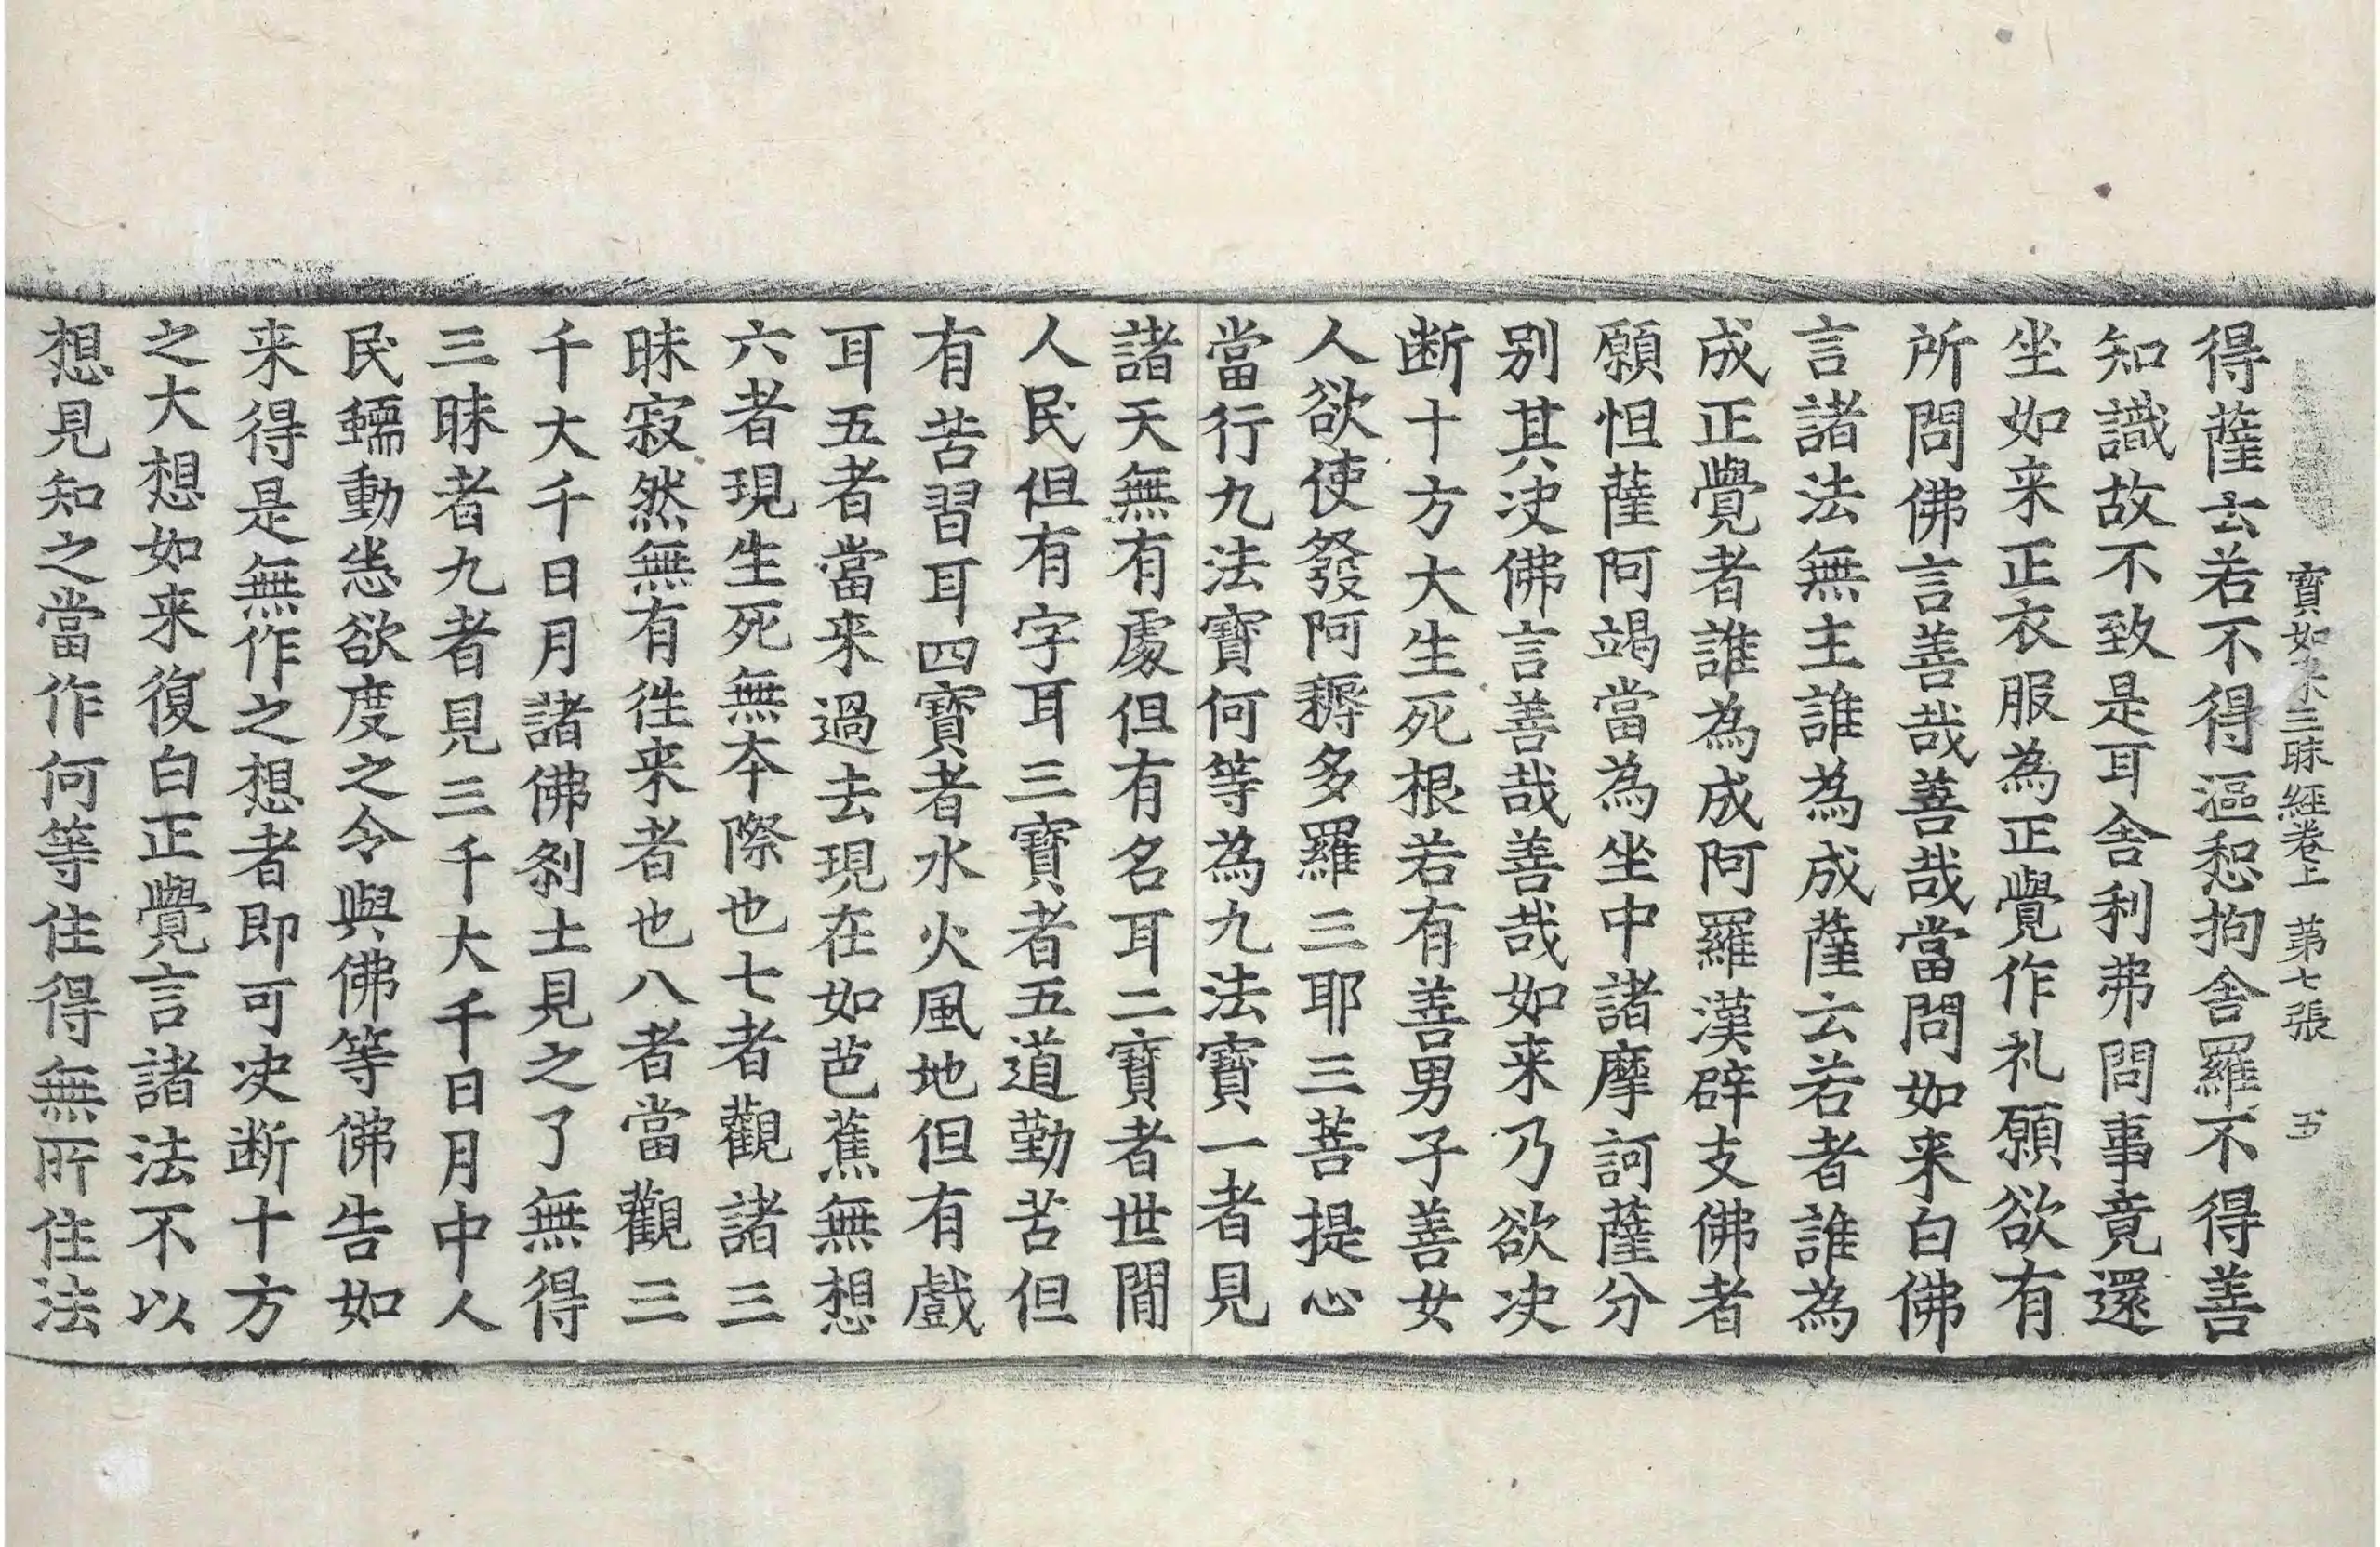 寶如来三昧經卷上 第七張 五
得薩云若不得漚惒拘舍羅不得善
知識故不致是耳舍利弗問事竟還
坐如来正衣服為正覺作礼願欲有
所問佛言善哉善哉當問如来白佛
言諸法無主誰為成薩云若者誰為
成正覺者誰為成阿羅漢辟支佛者
願怛薩阿竭當為坐中諸摩訶薩分
別其决佛言善哉善哉如来乃欲决
断十方大生死根若有善男子善女
人欲使發阿耨多羅三耶三菩提心
當行九法寶何等為九法寶一者見
諸天無有處但有名耳二寶者世閒
人民但有字耳三寶者五道勤苦但
有苦習耳四寶者水火風地但有戲
耳五者當来過去現在如芭蕉無想
六者現生死無夲際也七者觀諸三
昧寂然無有徃来者也八者當觀三
千大千日月諸佛剎土見之了無得
三昧者九者見三千大千日月中人
民蠕動悉欲度之令與佛等佛告如
来得是無作之想者即可决断十方
之大想如来復白正覺言諸法不以
想見知之當作何等住得無所住法